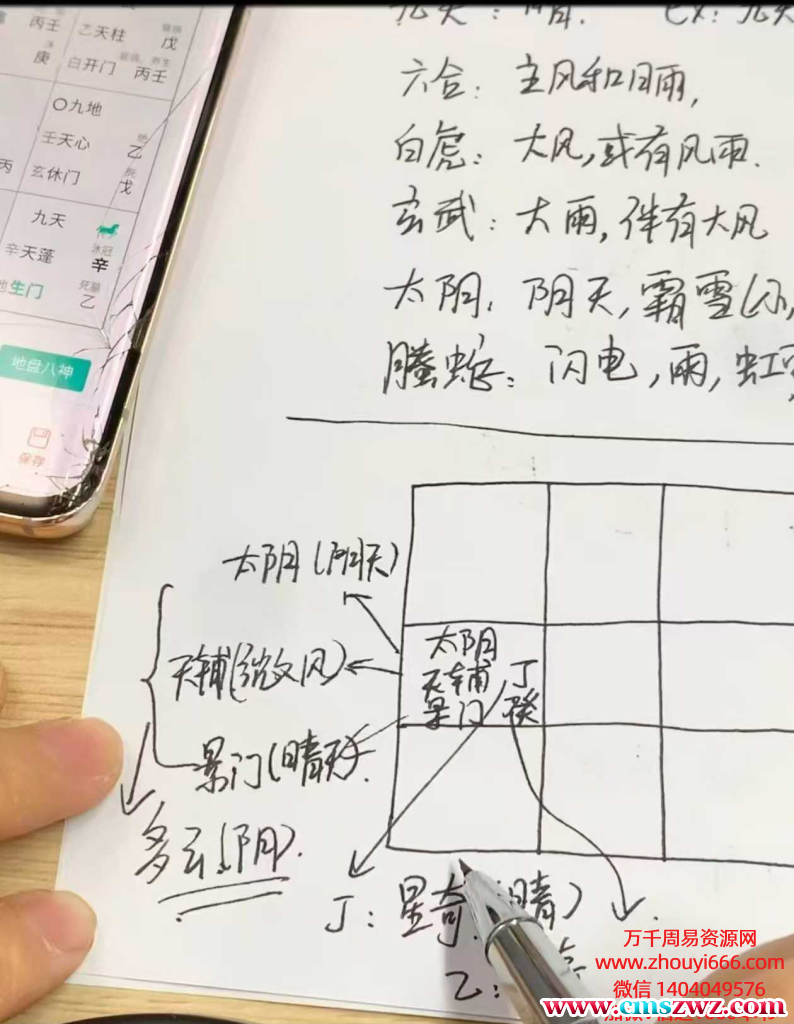 丙壬
庚
乙天柱
戊
白开门
丙壬
九地
壬天心
乙
玄休门
戊
丙
九天
辛天蓬
沐冠
辛
生门
死墓
乙
地盘八神
保存
六合：主风和日雨,
白虎：大风,或有风雨.
玄武：大雨,伴有大风
太阴：阴天,霜雪
腾蛇：闪电,雨,虹
太阴(阴天)
天辅(微风)
景门(晴天).
多云(阴).
太阴
天辅 丁
景门 癸
丁：星奇(晴)
乙：
万千周易资源网
www.zhouyi666.com
微信 1404049576
www.cmszwz.com